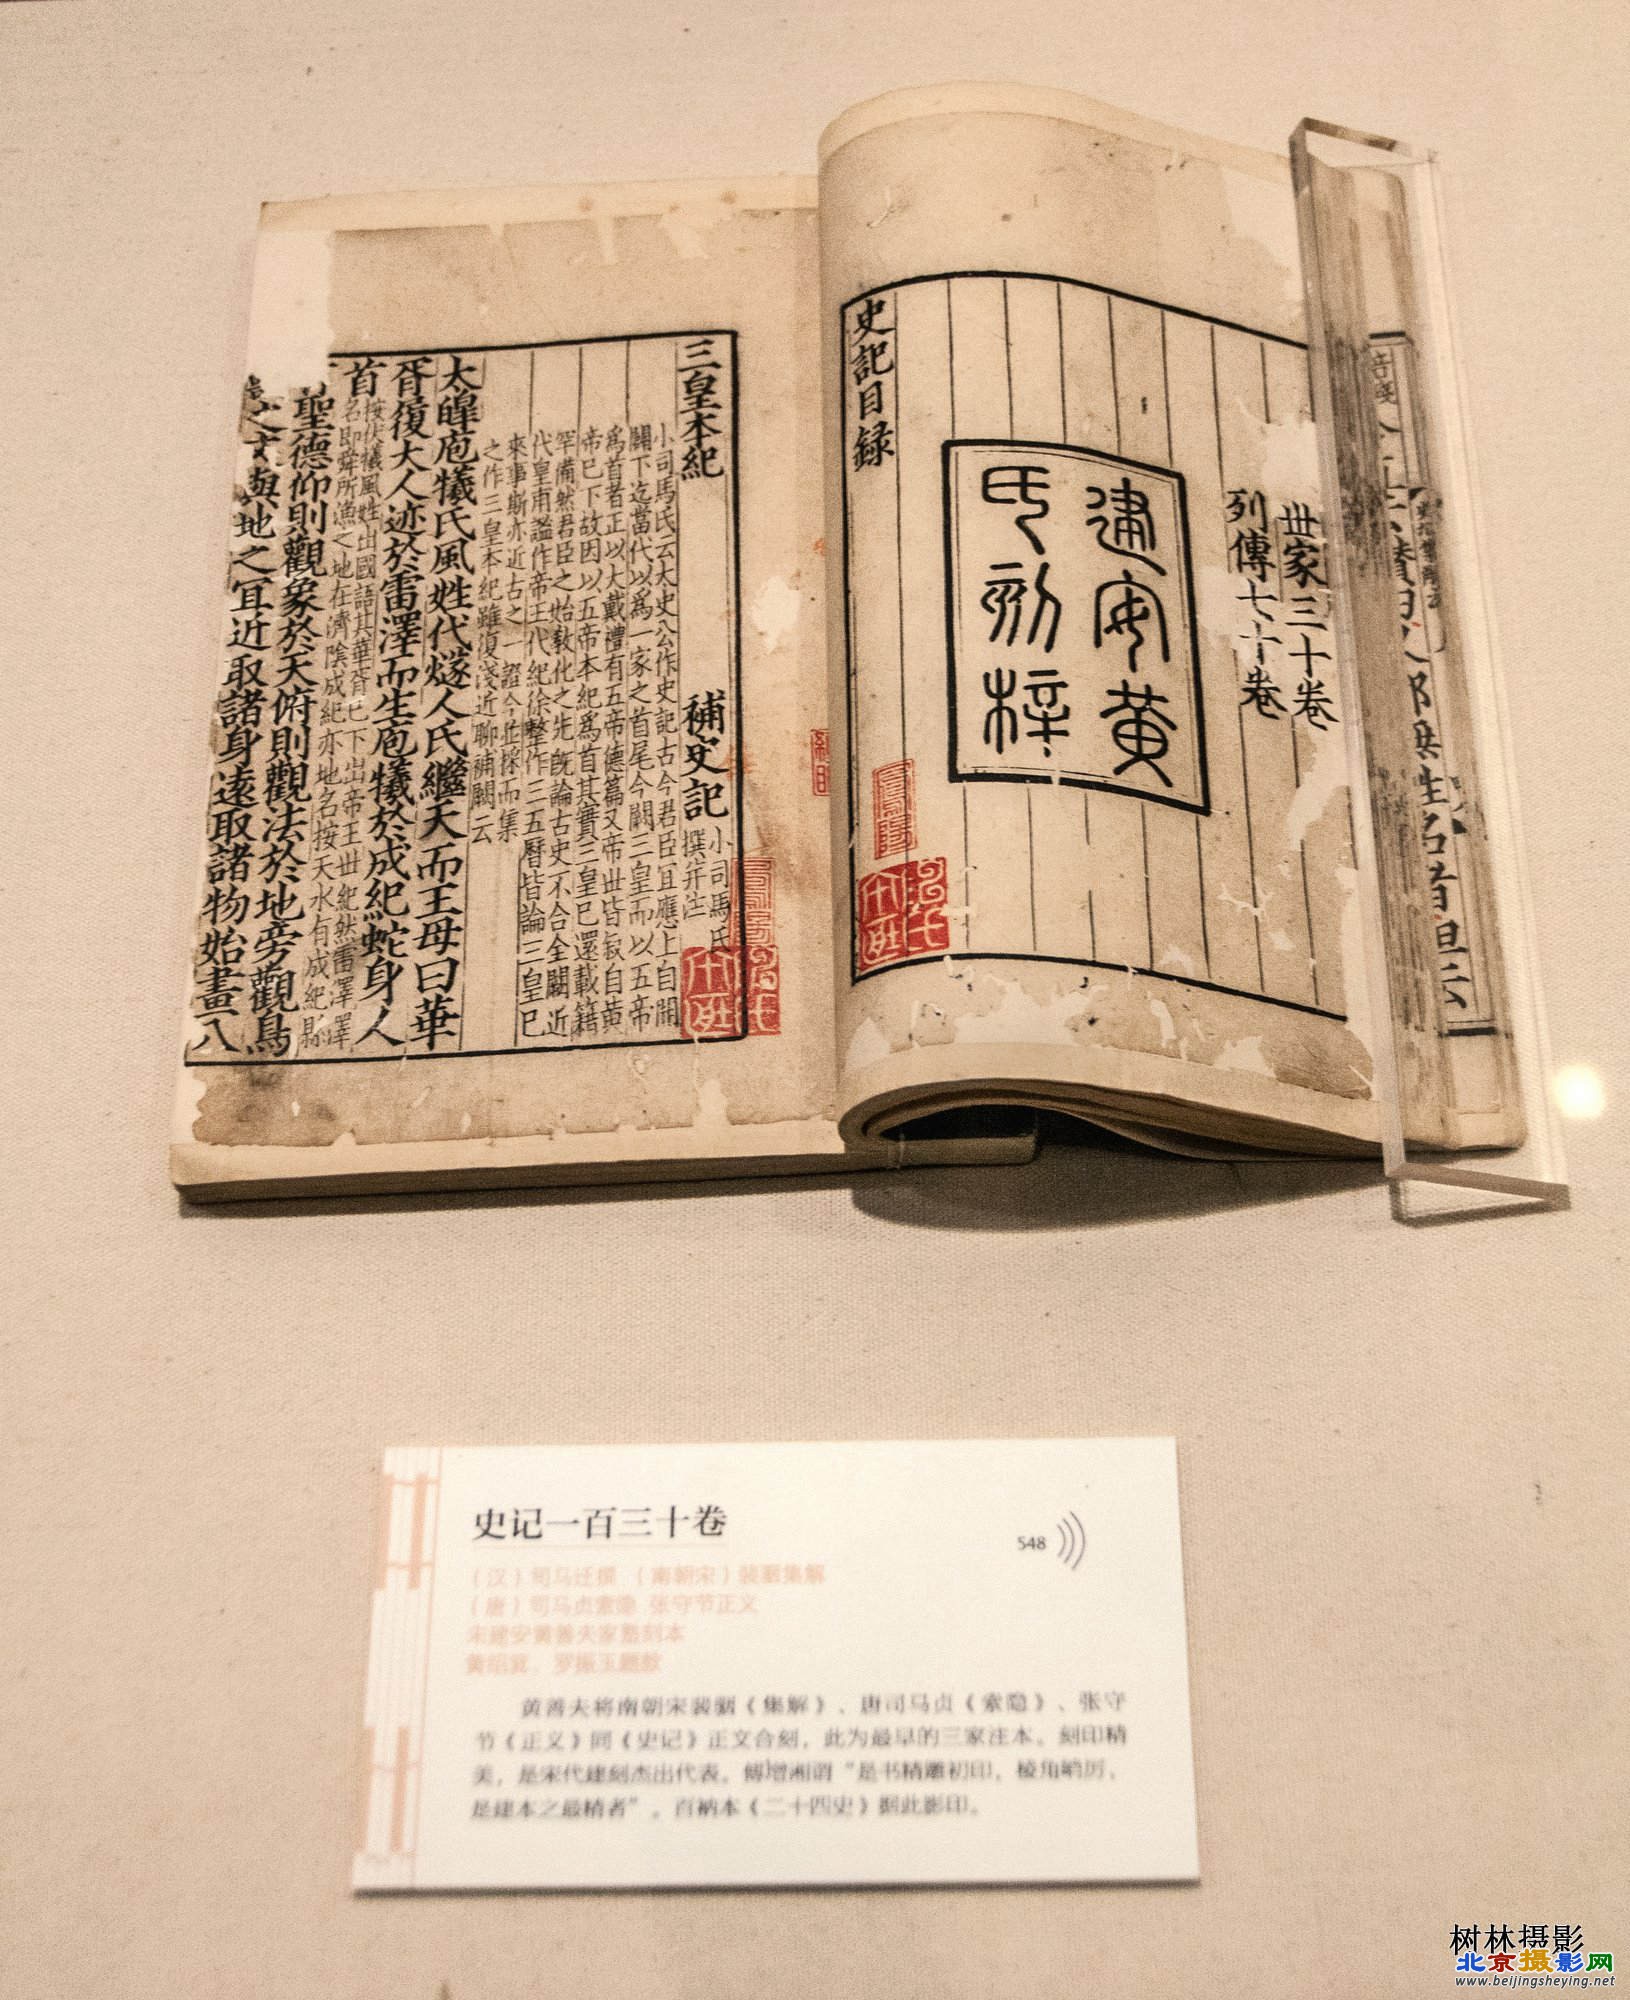 世家三十卷
列傳七十卷
建安黄
氏刻梓
史記目録
三皇本紀 補史記 小司馬氏
撰并注
小司馬氏云太史公作史記古今君臣宜應上自開
闢下迄當代以爲一家之首尾今闕三皇而以五帝
爲首者正以大戴禮有五帝德篇又帝丗皆叙自黄
帝已下故因以五帝本紀爲首其實三皇已還載籍
罕備然君臣之始教化之先旣論古史不合全闕近
代皇甫謐作帝王代紀徐整作三五曆皆論三皇已
來事斯亦近古之一證今並採而集
之作三皇本紀雖復淺近聊補闕云
太皥庖犧氏風姓代燧人氏繼天而王母曰華
胥履大人迹於雷澤而生庖犧於成紀蛇身人
首
按伏犧風姓出國語其華胥已下出帝王丗紀然雷澤澤
名即舜所漁之地在濟陰成紀亦地名按天水有成紀縣
聖德仰則觀象於天俯則觀法於地旁觀鳥
與地之冝近取諸身遠取諸物始畫八
史记一百三十卷
548
（汉）司马迁撰 （南朝宋）裴骃集解
（唐）司马贞索隐 张守节正义
宋建安黄善夫家塾刻本
黄绍箕、罗振玉题款
黄善夫将南朝宋裴骃《集解》、唐司马贞《索隐》、张守
节《正义》同《史记》正文合刻，此为最早的三家注本。刻印精
美，是宋代建刻杰出代表。傅增湘谓“是书精雕初印，棱角峭厉，
是建本之最精者”。百衲本《二十四史》据此影印。
树林摄影
北京摄影网
www.beijingsheying.net